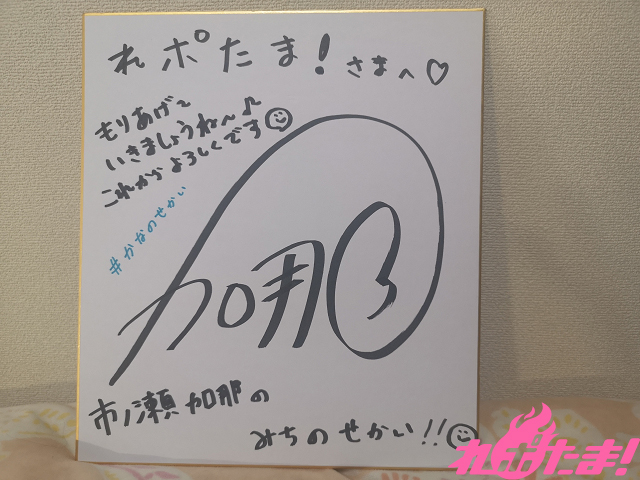 れポたま！さまへ♡
もりあげて
いきましょうね〜♪
これからよろしくです
#かなのせかい
加那
市ノ瀬加那の
みちのせかい!!
れポたま!